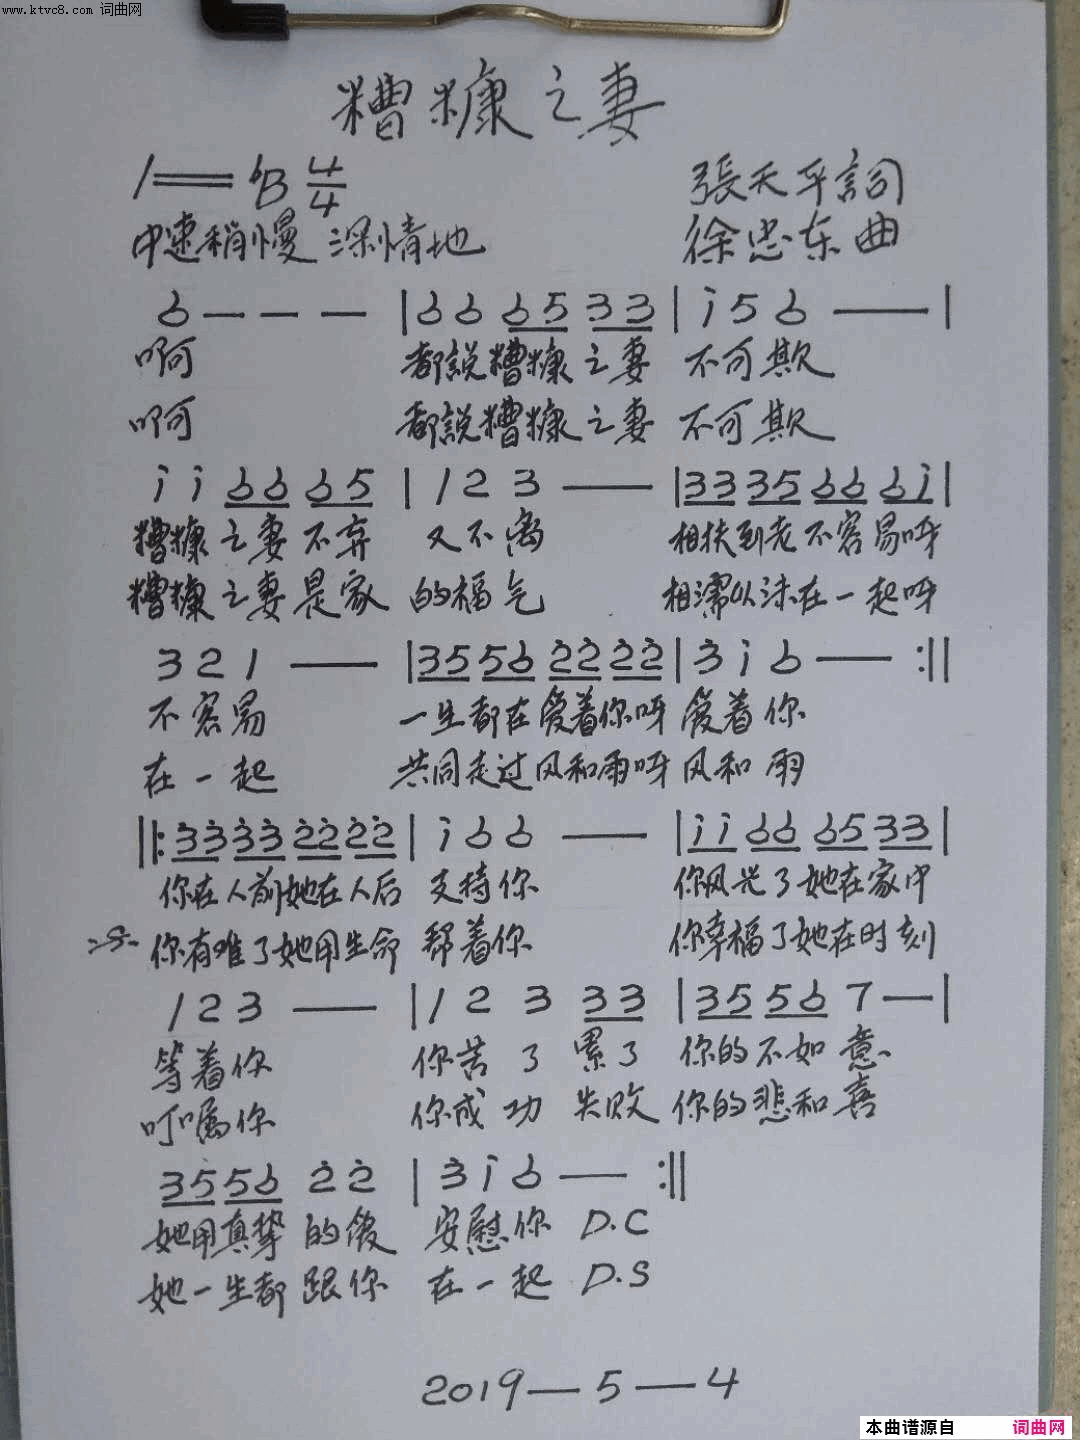 www.ktvc8.com 词曲网
糟糠之妻
1== ♭B 4/4
張天平詞
中速稍慢 深情地
徐忠东曲
6 — — — | 6 6 6 5 3 3 | i 5 6 — |
啊 都說糟糠之妻 不可欺
啊 都說糟糠之妻 不可欺
i i 6 6 6 5 | 1 2 3 — | 3 3 3 5 6 6 6 i |
糟糠之妻不弃 又不离 相扶到老不容易呀
糟糠之妻是家 的福气 相濡以沫在一起呀
3 2 1 — | 3 5 5 6 2̇ 2̇ 2̇ 2̇ | 3̇ i 6 — :||
不容易 一生都在爱着你呀 爱着你
在一起 共同走过风和雨呀 风和雨
||: 3̇ 3̇ 3̇ 3̇ 2̇ 2̇ 2̇ 2̇ | i 6 6 — | i i 6 6 6 5 3 3 |
你在人前她在人后 支持你 你风光了她在家中
你有难了她用生命 帮着你 你幸福了她在时刻
1 2 3 — | 1 2 3 3 3 | 3 5 5 6 7 — |
等着你 你苦了累了 你的不如意
叮嘱你 你成功失败 你的悲和喜
3 5 5 6 2̇ 2̇ | 3̇ i 6 — :||
她用真挚的爱 安慰你 D.C
她一生都跟你 在一起 D.S
2019—5—4
本曲谱源自 词曲网